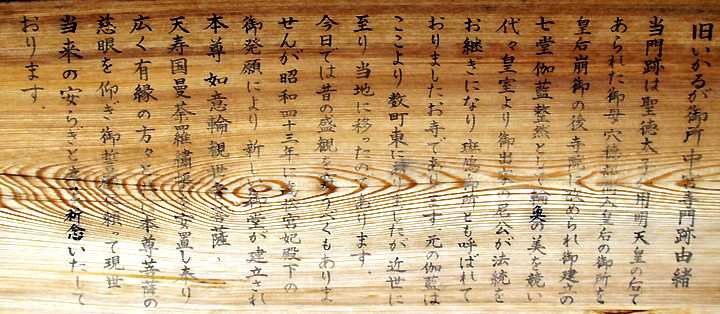 旧いかるが御所 中宮寺門跡由緒
当門跡は聖徳太子が用明天皇の后で
あられた御母穴穂部間人皇后の御所を
皇后崩御の後寺院に改められ御建立の
七堂伽藍整然として輪奐の美を競い
代々皇室より御出家の尼公が法統を
お継ぎになり斑鳩御所とも呼ばれて
おりましたお寺であります元の伽藍は
ここより数町東に ありましたが近世に
至り当地に移ったのであります.
今日では昔の盛観を うべくもありま
せんが昭和四十三年に高松宮妃殿下の
御発願により新しい御堂が建立され
本尊如意輪観世音菩薩、
天寿国曼荼羅繍帳を安置し奉り
広く有縁の方々と共に本尊菩薩の
慈眼を仰ぎ御誓願に頼って現世
当来の安らぎとを 祈念いたして
おります.